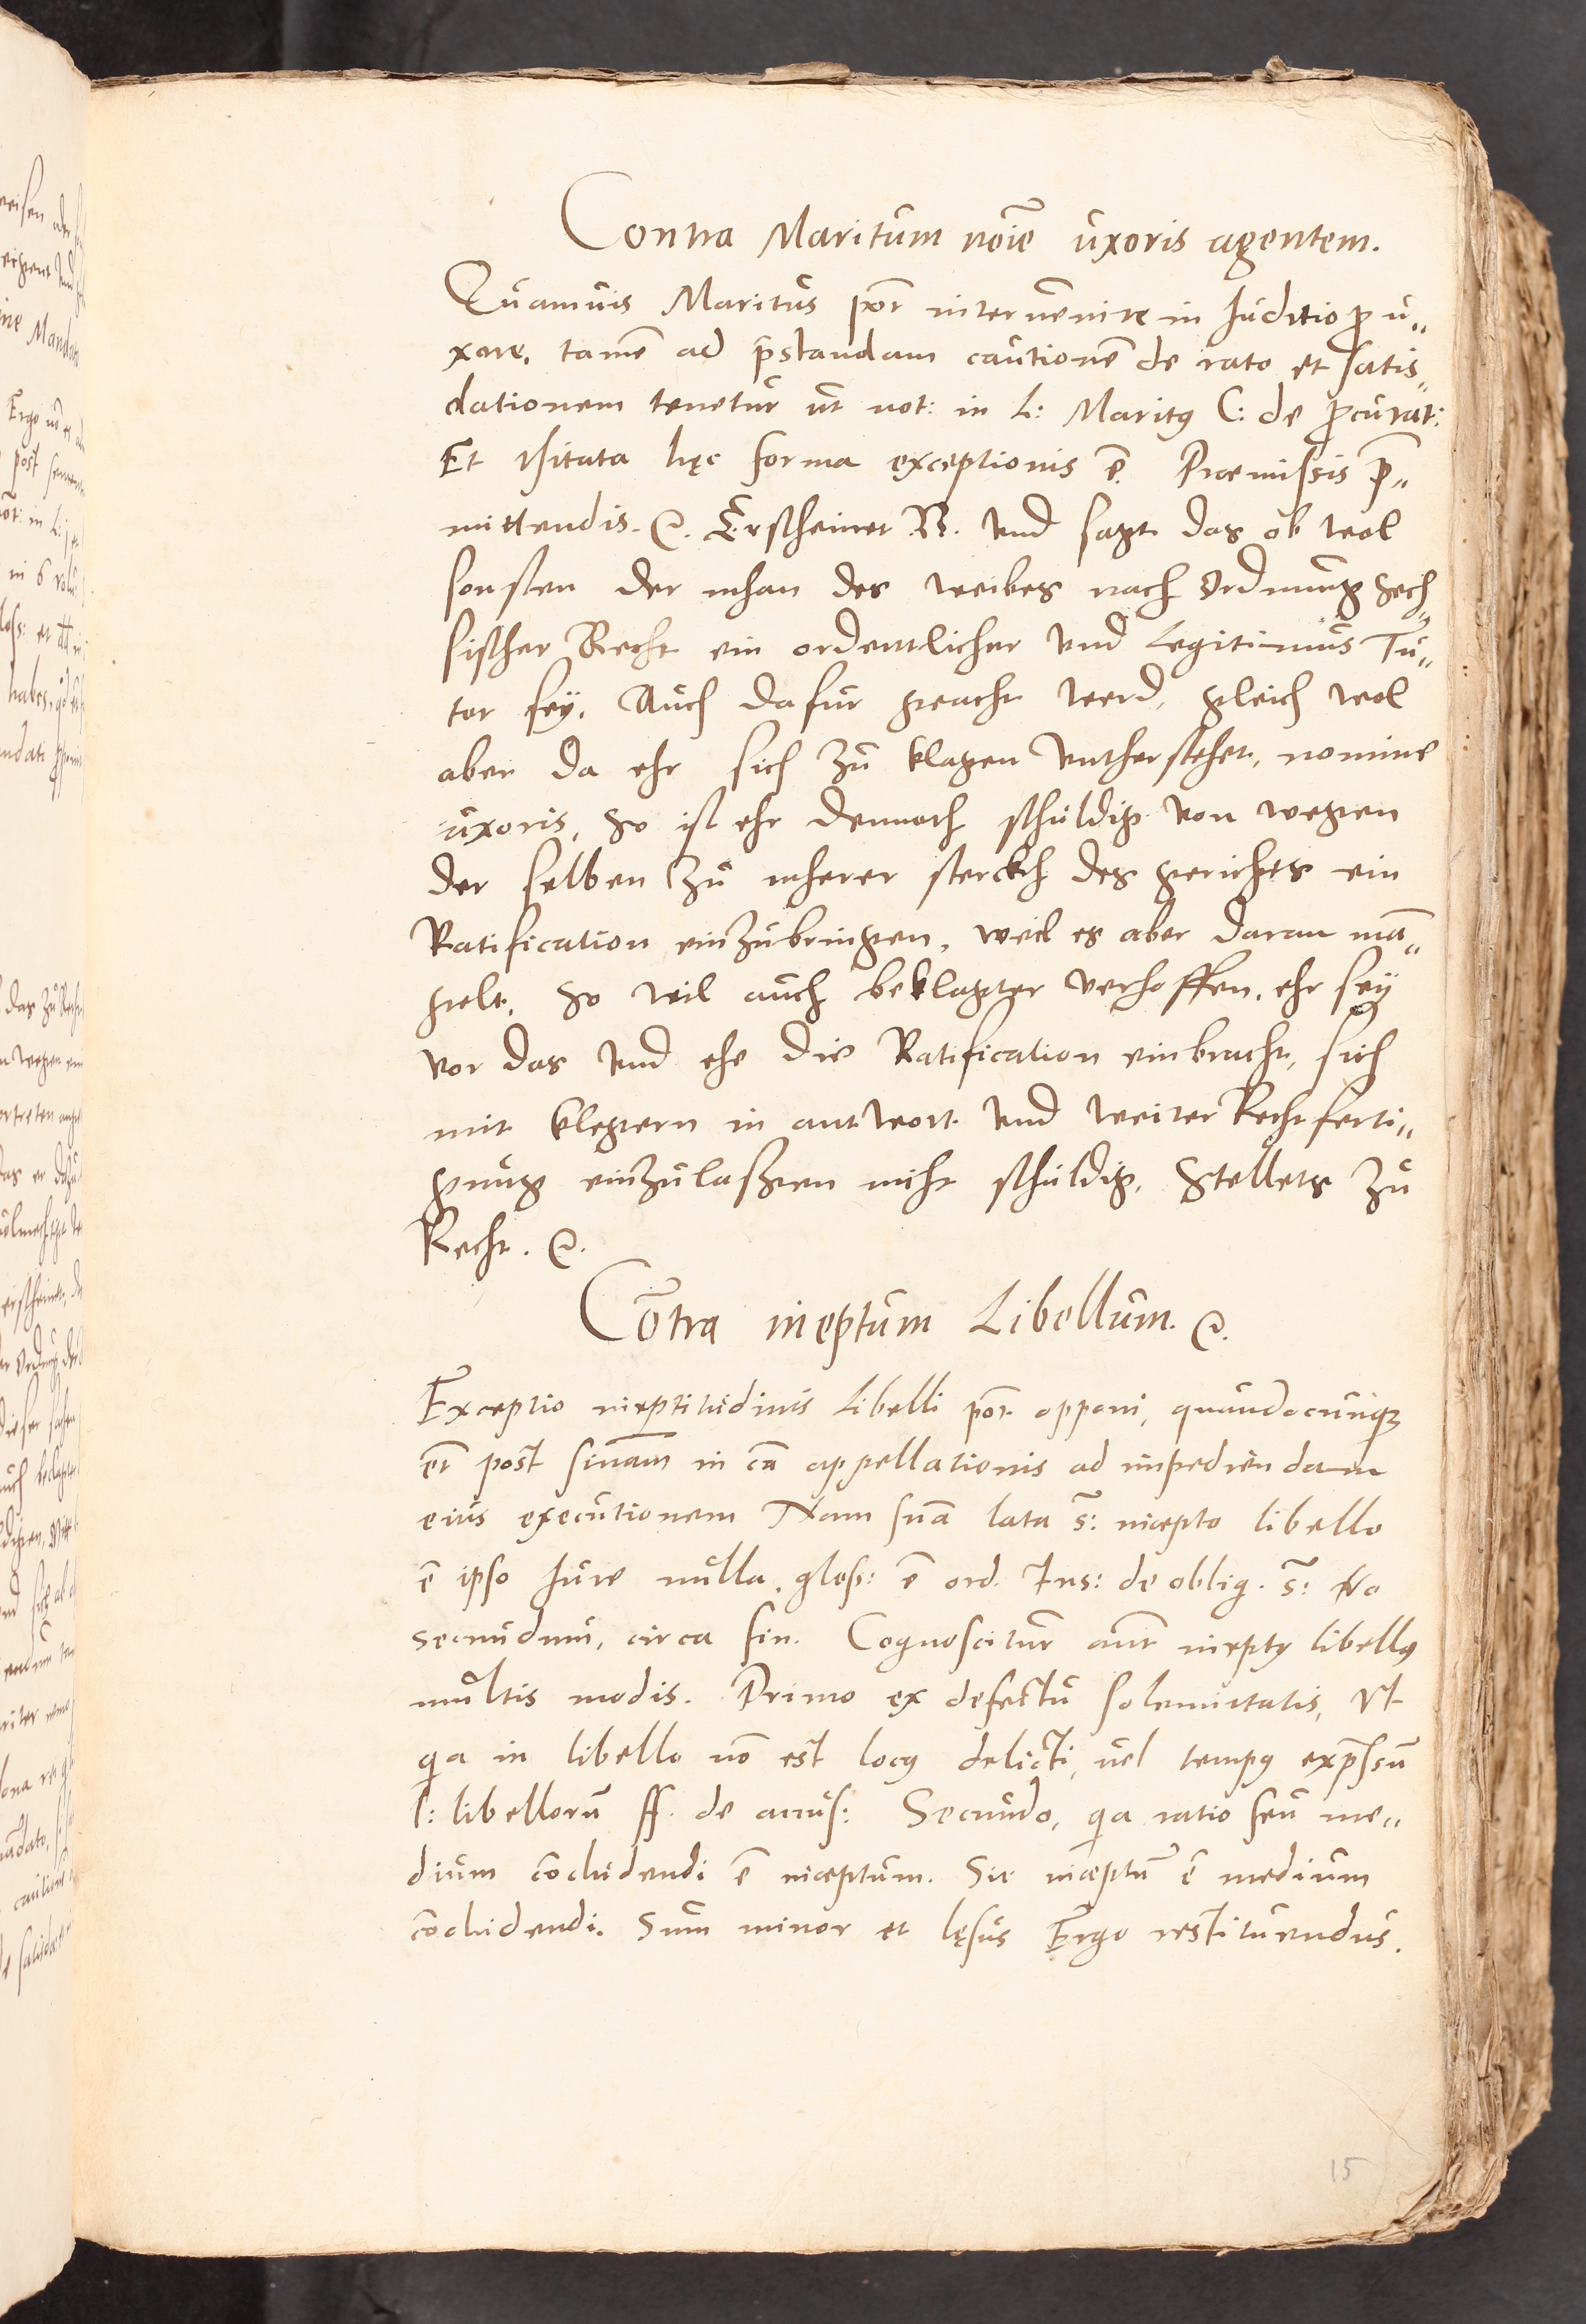 Contra Maritum noie͂ uxoris agentem.
Quamuis Maritus pot͂ interuenire in Juditio ꝓ u„
xore, tame͂ ad p͂standam cautione͂ de rato et satis„
dationem tenetur ut not: in L: Maritꝰ C: de ꝓcurat:
Et usitata hęc forma exceptionis e͂. Præmissis p͂„
mittendis. ꝛc. Erscheinet B. und sagt das ob wol
sonsten der mhan des weibes nach Ordnung Sech„
sischer Recht ein ordentlicher und Legitimus Tu„
tor sey, Auch dafur geacht werd, gleich wol
aber da ehr sich zu klagen untherstehet, nomine
uxoris, so ist ehr dennoch schuldig von wegen
der selben zu meherer sterckh des gerichts ein
Ratification einzubringen, weil es aber daran ma͂„
gelt, so wil auch beklagter verhoffen, ehr sey
vor das und ehe die Ratification einbracht, sich
mit klegern in antwort und weiter Rechtferti„
gung einzulaßen nicht schuldig, Stellets zu
Recht. ꝛc.
Co͂tra ineptum Libellum. ꝛc.
Exceptio ineptitudinis Libelli pot͂ opponi, quandocunqꝫ
et͂ post snia͂m in ca͂ appellationis ad impediendam
eius executionem Nam sna͂ lata s͂: inepto libello
e͂ ipso Jure nulla. glos: e͂ ord. Ins: de oblig. s͂: No
secundum, circa fin. Cognoscitur aut͂ ineptꝰ libellꝰ
multis modis. Primo ex defectu solemnitatis, Ut
qa in libello no͂ est locꝰ delicti, uel tempꝰ exp͂ssu͂
l: libelloru͂ ff. de accus: Secundo, qa ratio seu me„
dium co͂cludendi e͂ ineptum. Sic ineptu͂ e͂ medium
co͂cludendi. Sum minor et lęsus Ergo restituendus.
15